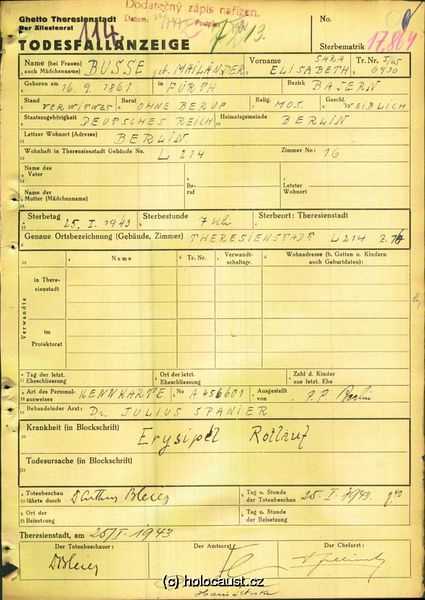 Dodatečný zápis nařízen.
Ghetto Theresienstadt
Der Ältestenrat
No.
Datum:
Podpis
114.
TODESFALLANZEIGE
Sterbematrik 17.864
Name (bei Frauen) auch Mädchenname) BUSSE geb. MAILÄNDER
Vorname SARA ELISABETH
Tr. Nr. I/65 6430
Geboren am 16.9.1861 in FÜRTH Bezirk BAYERN
Stand VERWITWET Beruf OHNE BERUF Relig. MOS. Geschl. WEIBLICH
Staatszugehörigkeit DEUTSCHES REICH Heimatsgemeinde BERLIN
Letzter Wohnort (Adresse) BERLIN
Wohnhaft in Theresienstadt Gebäude No. L 214 Zimmer No. 16
Name des Vater
Name der Mutter (Mädchenname)
Beruf
Letzter Wohnort
Sterbetag 25. I. 1943 Sterbestunde 7 Uhr Sterbeort: Theresienstadt
Genaue Ortsbezeichnung (Gebäude, Zimmer) THERESIENSTADT L 214 Z.
Name
Tr. Nr.
Verwandtschaftsgr.
Wohnadresse (b. Gatten u. Kindern auch Geburtsdaten):
Verwandte
in Theresienstadt
im Protektorat
Tag der letzt. Eheschliessung
Ort der letzt. Eheschliessung
Zahl d. Kinder aus letzt. Ehe
Art des Personalausweises KENNKARTE No A 456601 Ausgestellt von P.P. Berlin
Behandelnder Arzt: Dr. JULIUS SPANIER
Krankheit (in Blockschrift) Erysipel Rotlauf
Todesursache (in Blockschrift)
Totenbeschau führte durch Bleier
Tag u. Stunde der Totenbeschau 25. I. 1943
Ort der Beisetzung
Tag u. Stunde der Beisetzung
Theresienstadt, am 25/I. 1943
Der Totenbeschauer:
Der Amtsarzt:
Der Chefarzt:
(c) holocaust.cz